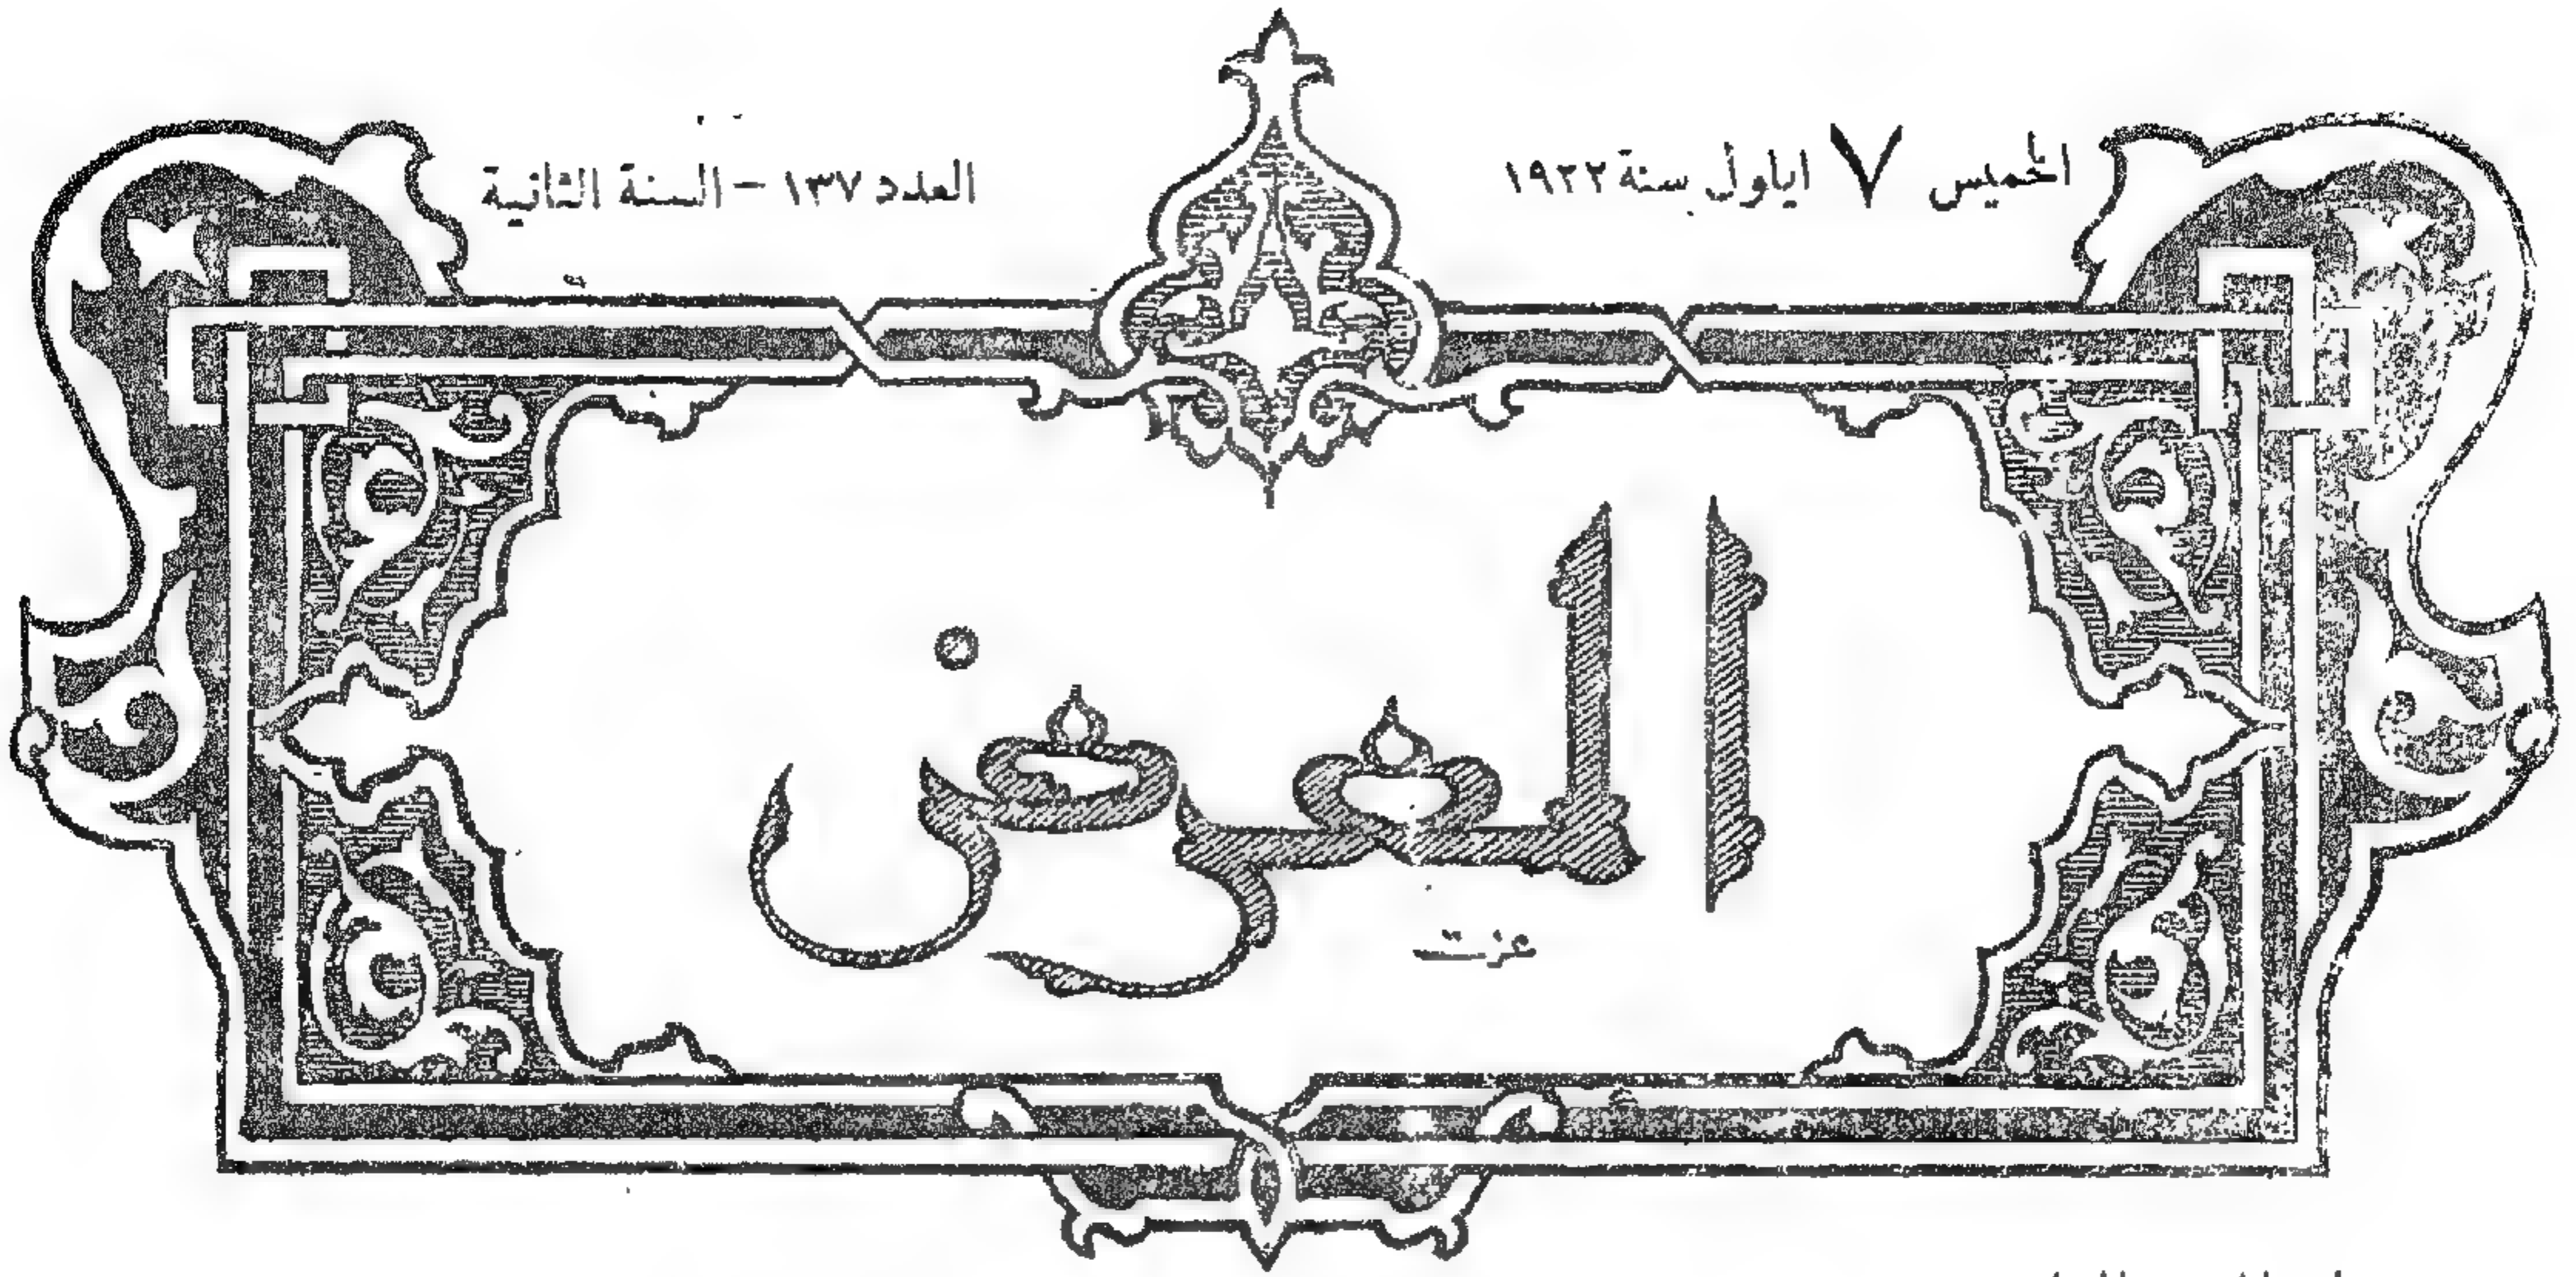 الخميس ٧ ايلول سنة ١٩٢٢
العدد ١٣٧ - السنة الثانية
المعرض
عزت